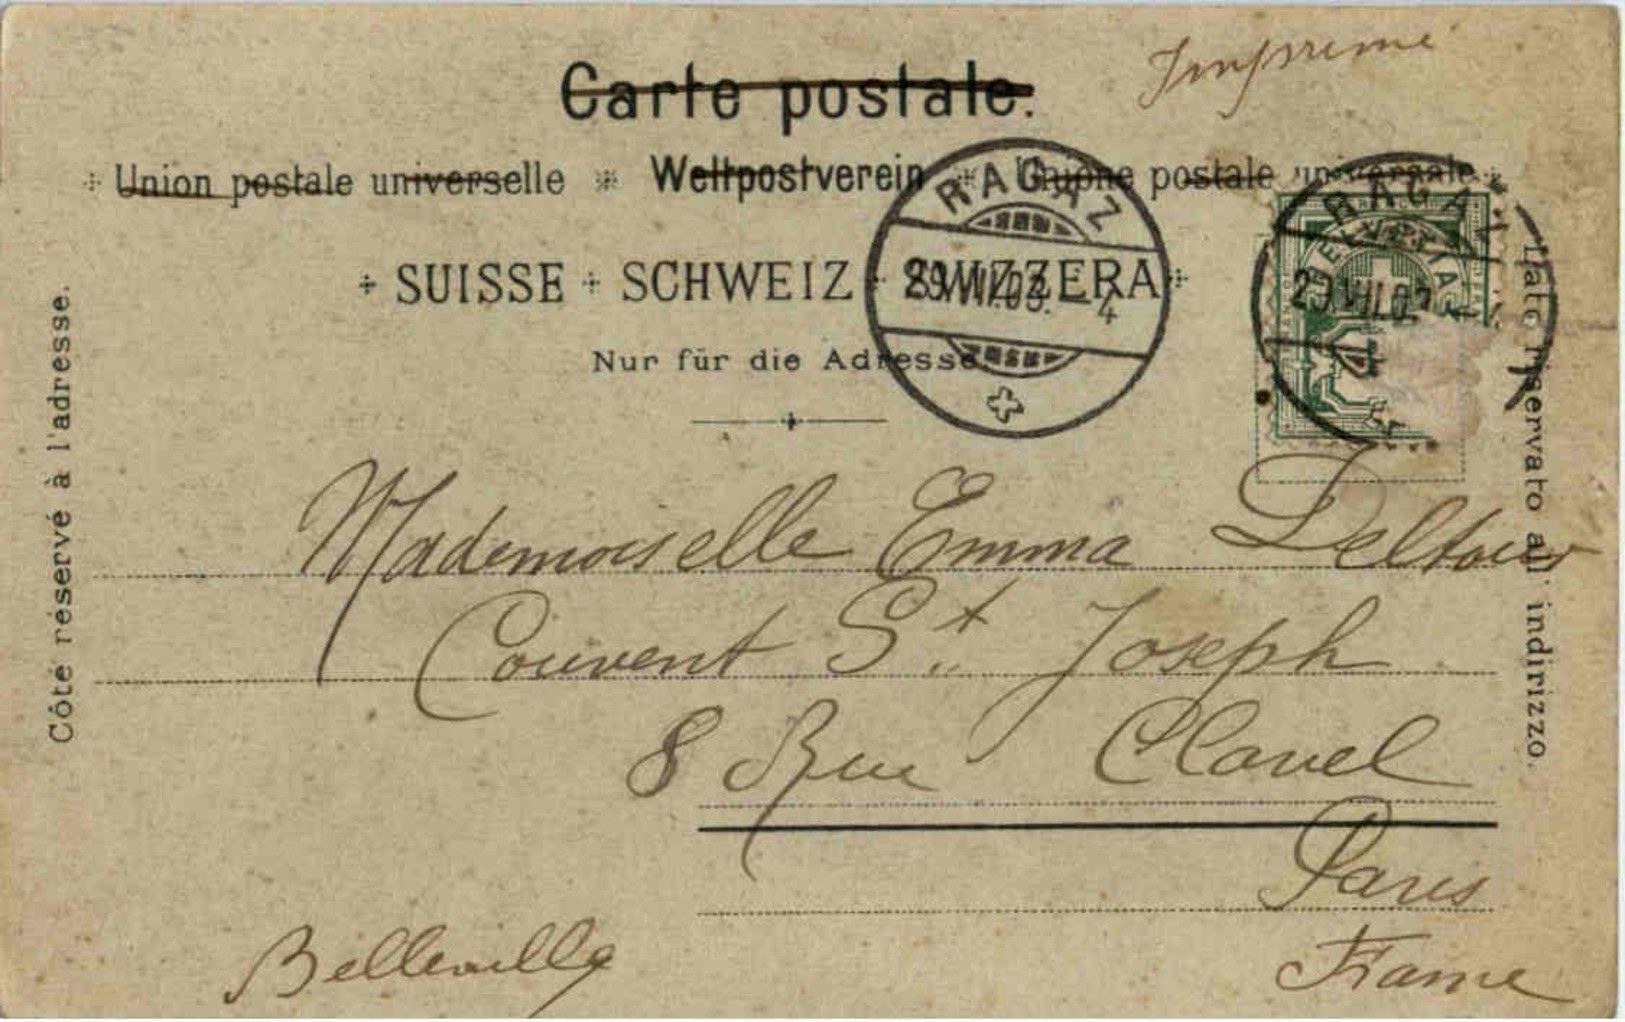 Imprimé
Carte postale.
Union postale universelle * Weltpostverein * Unione postale universale
SUISSE + SCHWEIZ + SVIZZERA
Nur für die Adresse
Côté réservé à l'adresse.
Lato riservato all' indirizzo.
RAGAZ
29.VIII.03. - 4
RAGAZ
29.VIII.03
HELVETIA
Mademoiselle Emma Deltour
Couvent St. Joseph
8 Rue Clavel
Paris
Belleville
France